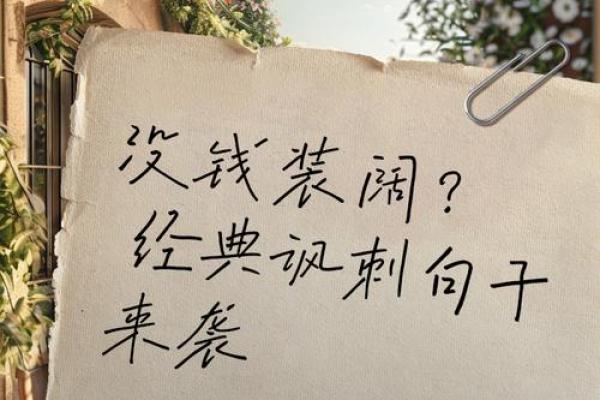 没钱装阔？
经典讽刺句子
来袭